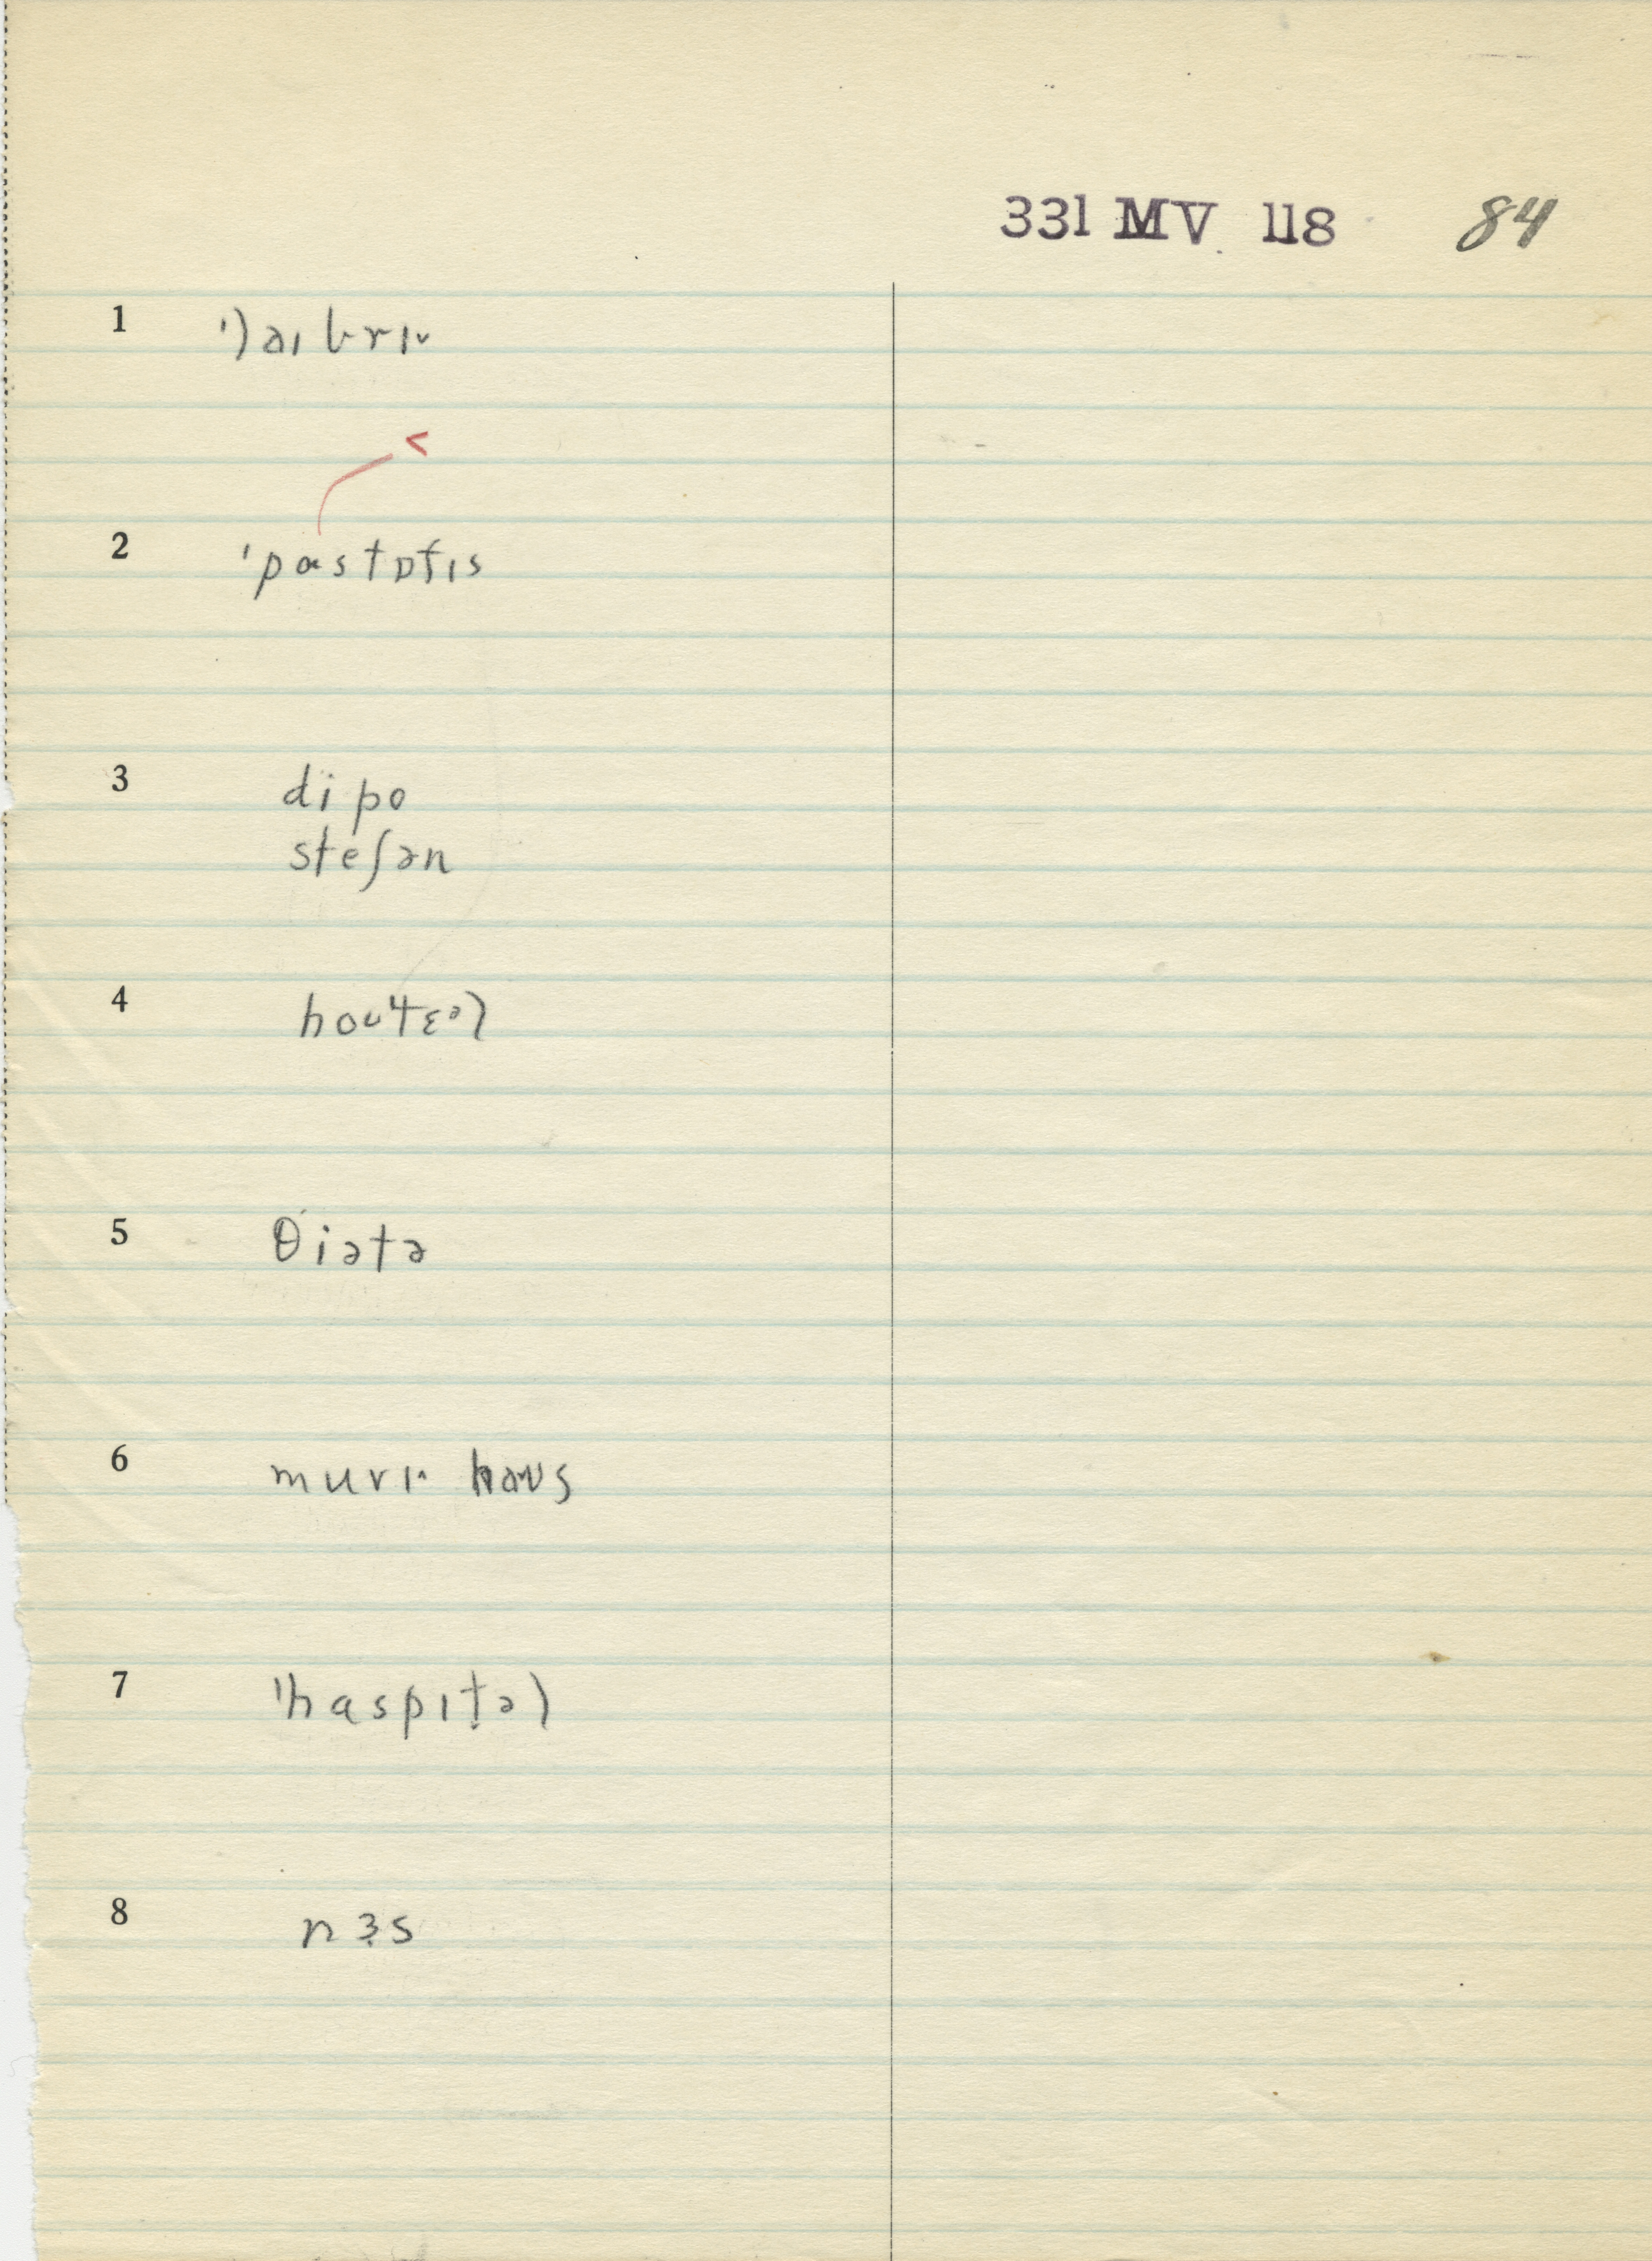 331 MV 118 84
1 ˈlaɪbrɪ˅
<
2 ˈpɑstɒfɪs
3 dipo
steʃən
4 hoʊˈtɛᵊl
5 θiətə
6 muvɪ˄ haʊs
7 ˈhaspɪt̬əl
8 nɜs